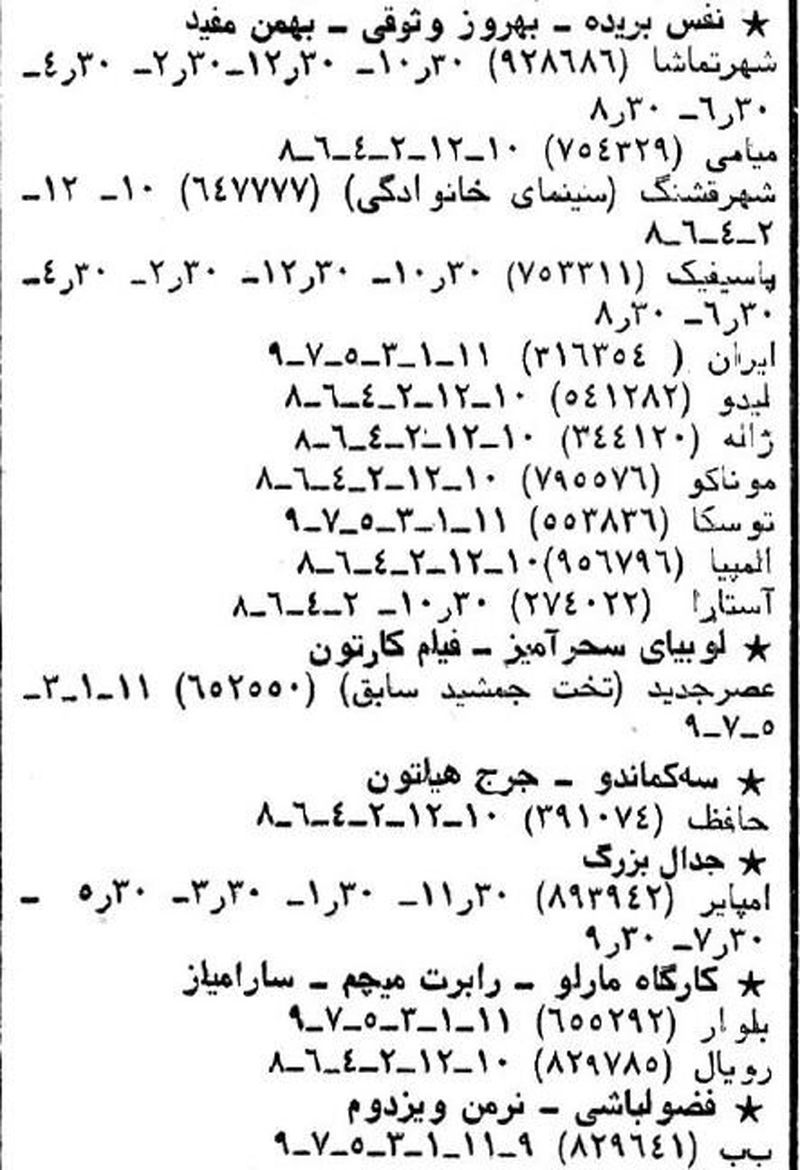 ★ نفس بریده ـ بهروز وثوقی ـ بهمن مفید
شهرتماشا (۹۲۸۶۸۶) ۱۰٫۳۰ـ ۱۲٫۳۰ـ۲٫۳۰ـ ۴٫۳۰ـ
۶٫۳۰ـ ۸٫۳۰
میامی (۷۵٤۳۲۹) ۱۰ـ۱۲ـ۲ـ٤ـ۶ـ۸
شهرقشنگ (سینمای خانوادگی) (۶٤۷۷۷۷) ۱۰ـ ۱۲ـ
۲ـ٤ـ۶ـ۸
پاسیفیک (۷۵۳۳۱۱) ۱۰٫۳۰ـ ۱۲٫۳۰ـ ۲٫۳۰ـ ٤٫۳۰ـ
۶٫۳۰ـ ۸٫۳۰
ایران (۳۱۶۳۵٤ ) ۱۱ـ۱ـ۳ـ۵ـ۷ـ۹
لیدو (۵٤۱۲۸۲) ۱۰ـ۱۲ـ۲ـ٤ـ۶ـ۸
ژاله (۳٤٤۱۲۰) ۱۰ـ۱۲ـ۲ـ٤ـ۶ـ۸
موناکو (۷۹۵۵۷۶) ۱۰ـ۱۲ـ۲ـ٤ـ۶ـ۸
توسکا (۵۵۳۸۳۶) ۱۱ـ۱ـ۳ـ۵ـ۷ـ۹
المپیا (۹۵۶۷۹۶)۱۰ـ۱۲ـ۲ـ٤ـ۶ـ۸
آستارا (۲۷٤۰۲۲) ۱۰٫۳۰ـ ۲ـ٤ـ۶ـ۸
★ لوبیای سحرآمیز ـ فیلم کارتون
عصرجدید (تخت جمشید سابق) (۶۵۲۵۵۰) ۱۱ـ۱ـ۳ـ
۵ـ۷ـ۹
★ سه‌کماندو ـ جرج هیلتون
حافظ (۳۹۱۰۷٤) ۱۰ـ۱۲ـ۲ـ٤ـ۶ـ۸
★ جدال بزرگ
امپایر (۸۹۳۹٤۲) ۱۱٫۳۰ـ ۱٫۳۰ـ ۳٫۳۰ـ ۵٫۳۰ ـ
۷٫۳۰ـ ۹٫۳۰
★ کارگاه مارلو ـ رابرت میچم ـ سارامیلز
بلوار (۶۵۵۲۹۲) ۱۱ـ۱ـ۳ـ۵ـ۷ـ۹
رویال (۸۲۹۷۸۵) ۱۰ـ۱۲ـ۲ـ٤ـ۶ـ۸
★ فضولباشی ـ نرمن ویزدوم
ب‌ب (۸۲۹۶٤۱) ۹ـ۱۱ـ۱ـ۳ـ۵ـ۷ـ۹